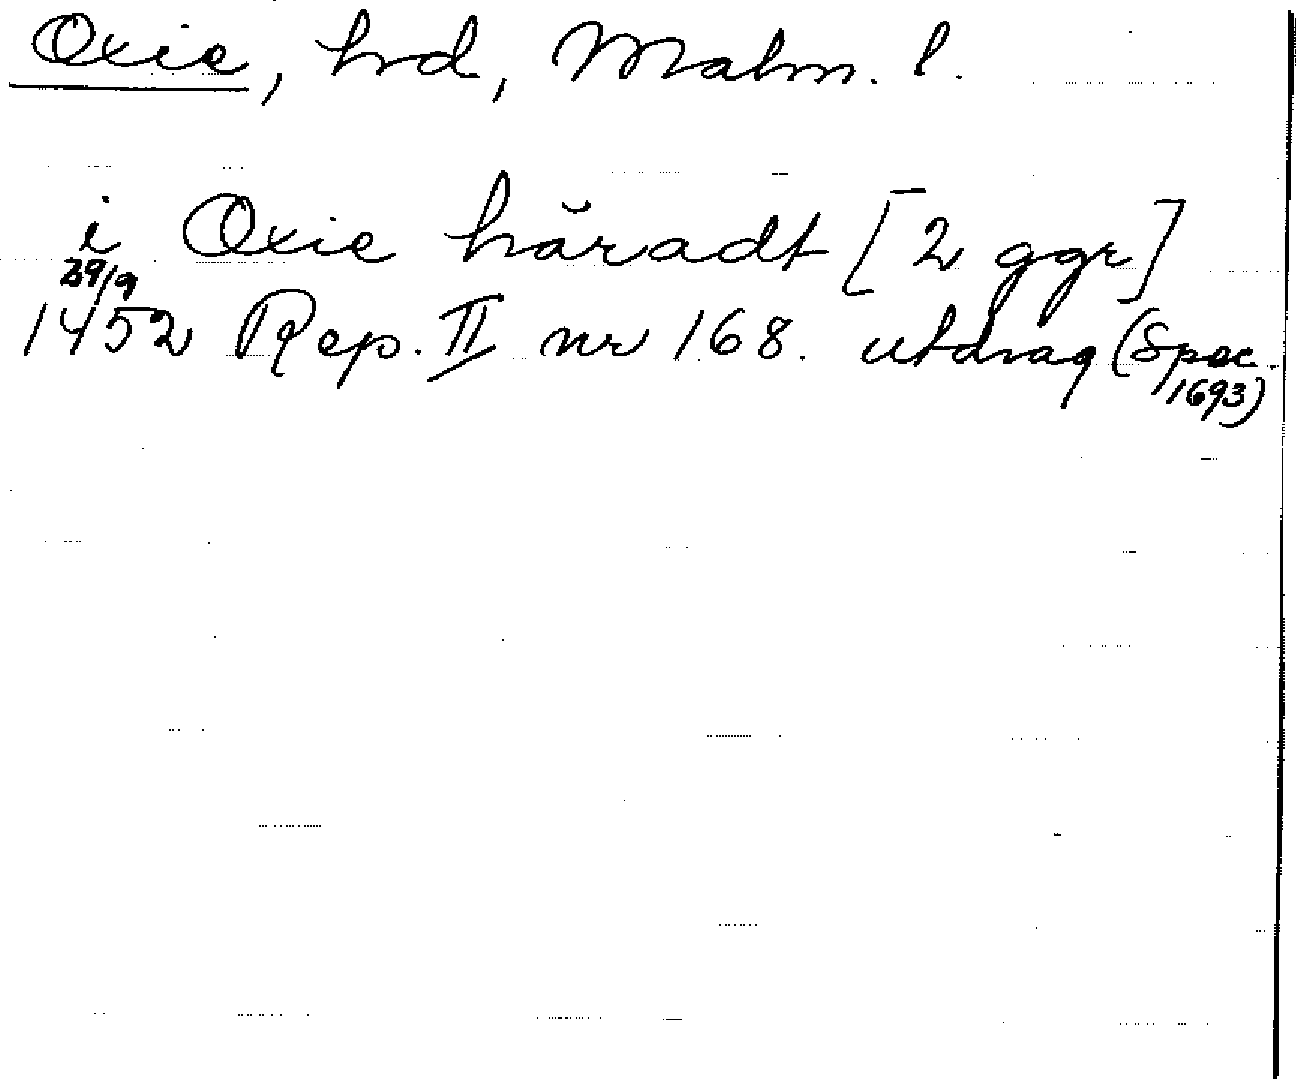 Oxie, hrd, Malm. l.
i Oxie häradt [2 ggr]
29/9
1452 Rep. II nr 168. utdrag (Spec.
1693)